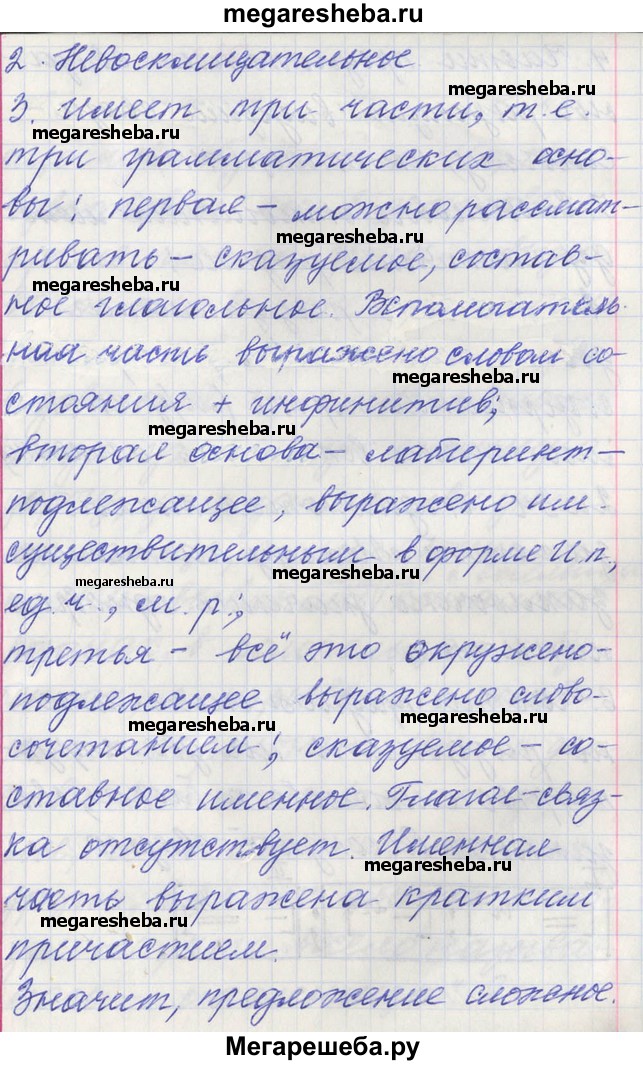 megaresheba.ru
2. Невосклицательное
megaresheba.ru
3. Имеет три части, т.е.
megaresheba.ru
три грамматических осно-
вы: первая – можно рассмат-
megaresheba.ru
ривать – сказуемое, состав-
megaresheba.ru
ное глагольное. Вспомогатель-
ная часть выражено словом со-
megaresheba.ru
стояния + инфинитив;
megaresheba.ru
вторая основа – лабиринт –
подлежащее, выражено им.
существительным в форме И.п.,
megaresheba.ru
ед.ч., м.р.;
третья – всё это окружено –
подлежащее выражено слово-
megaresheba.ru
megaresheba.ru
сочетанием; сказуемое – со-
ставное именное. Глагол-связ-
ка отсутствует. Именная
megaresheba.ru
часть выражена кратким
megaresheba.ru
причастием.
Значит, предложение сложное.
Мегарешеба.ру